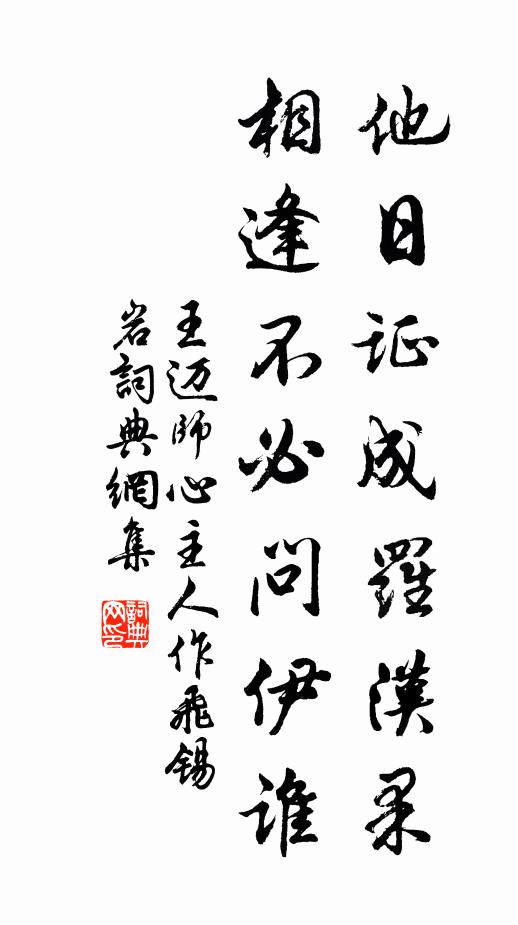 他日证成羅漢果
相逢不必問伊誰
王迈師心主人作飛錫
岩詞典網集
詞典网印